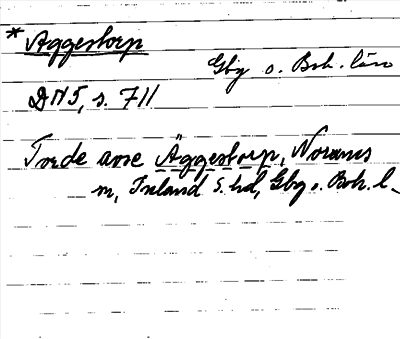 * Äggestorp
Gbg o. Boh. län
DN 5, s. 711
Torde avse Äggestorp, Norums
sn, Inland S. hd, Gbg o. Boh. l.